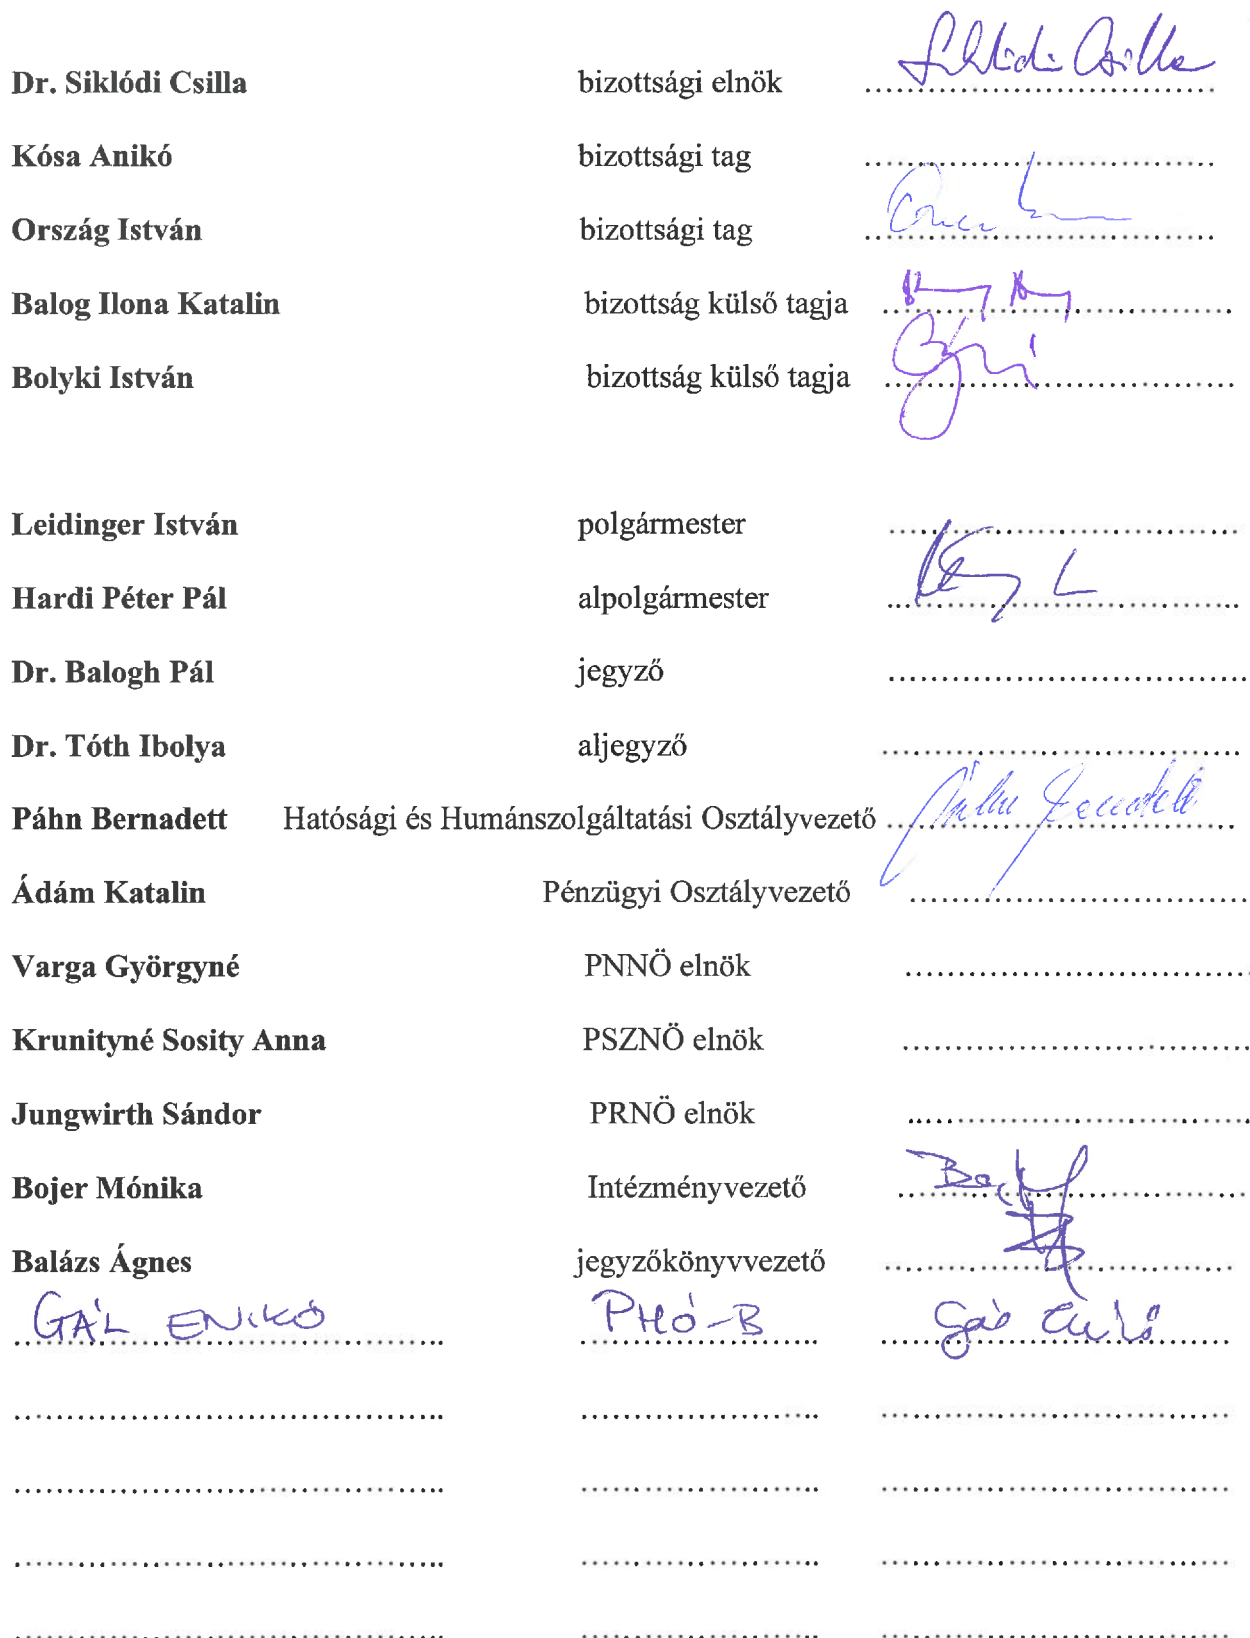 Dr. Siklódi Csilla bizottsági elnök Siklódi Csilla
Kósa Anikó bizottsági tag
Ország István bizottsági tag
Balog Ilona Katalin bizottság külső tagja
Bolyki István bizottság külső tagja
Leidinger István polgármester
Hardi Péter Pál alpolgármester
Dr. Balogh Pál jegyző
Dr. Tóth Ibolya aljegyző
Páhn Bernadett Hatósági és Humánszolgáltatási Osztályvezető Páhn Bernadett
Ádám Katalin Pénzügyi Osztályvezető
Varga Györgyné PNNÖ elnök
Krunityné Sosity Anna PSZNÖ elnök
Jungwirth Sándor PRNÖ elnök
Bojer Mónika Intézményvezető
Balázs Ágnes jegyzőkönyvvezető
GÁL ENIKŐ PHÓ-B Gál Enikő